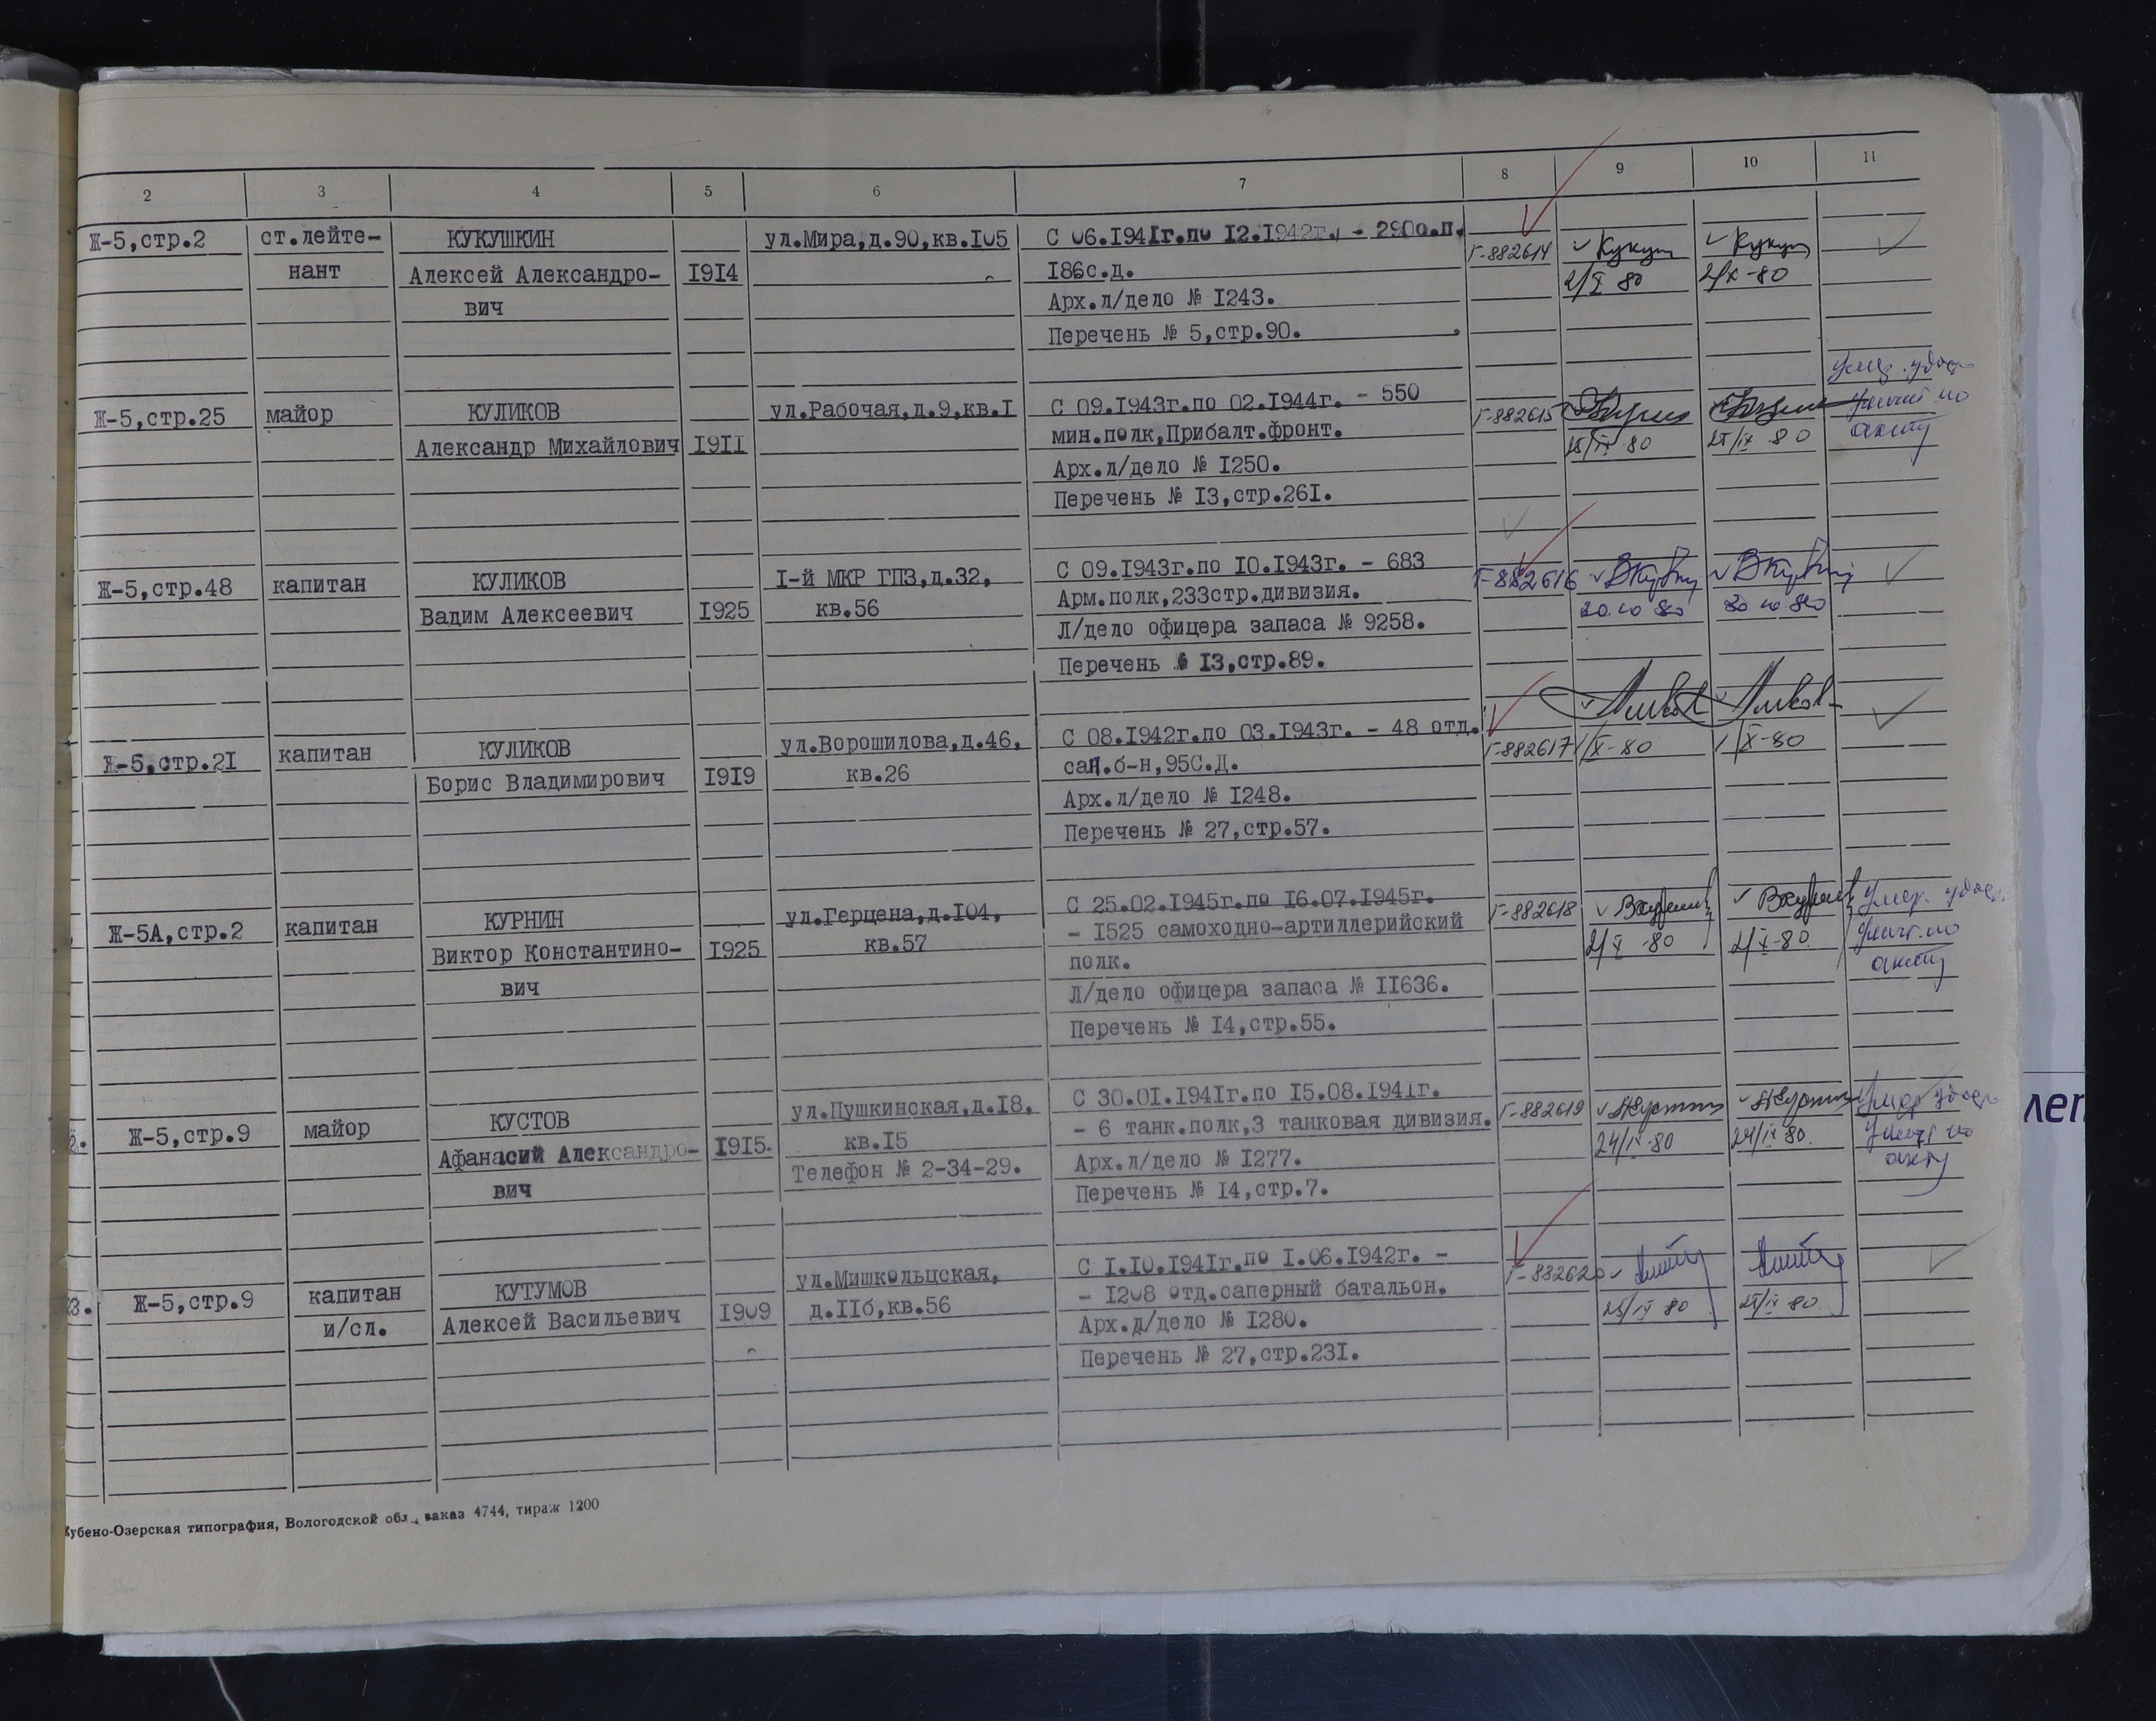 2 3 4 5 6 7 8 9 10 11
Ж-5,стр.2 ст.лейте- КУКУШКИН ул.Мира,д.90,кв.I05 С 06.194Iг.по 12.1942г. - 290о.п. Г-882614 Кукуш Кукуш
нант Алексей Александро- I9I4 I86с.д. 2/X 80 2/X-80
вич Арх.л/дело № I243.
Перечень № 5,стр.90.
Ж-5,стр.25 майор КУЛИКОВ ул.Рабочая,д.9,кв.I С 09.I943г.по 02.I944г. - 550 Г-882615 Умер. удос.
Александр Михайлович I9II мин.полк,Прибалт.фронт. 25/IX 80 25/IX 80 акту
Арх.л/дело № I250.
Перечень № I3,стр.26I.
Ж-5,стр.48 капитан КУЛИКОВ I-й МКР ГПЗ,д.32, С 09.I943г.по I0.I943г. - 683 Г-882616
Вадим Алексеевич I925 кв.56 Арм.полк,233стр.дивизия. 20.10 80
Л/дело офицера запаса № 9258.
Перечень № I3,стр.89.
Ж-5,стр.2I капитан КУЛИКОВ ул.Ворошилова,д.46, С 08.I942г.по 03.I943г. - 48 отд. Г-882617 1/X-80 1/X-80
Борис Владимирович I9I9 кв.26 сап.б-н,95С.Д.
Арх.л/дело № I248.
Перечень № 27,стр.57.
Ж-5А,стр.2 капитан КУРНИН ул.Герцена,д.I04, С 25.02.I945г.по I6.07.I945г. Г-882618 Умер. удос.
Виктор Константино- I925 кв.57 - I525 самоходно-артиллерийский 2/X-80 2/X-80 уничт. по
вич полк. акту
Л/дело офицера запаса № II636.
Перечень № I4,стр.55.
2. Ж-5,стр.9 майор КУСТОВ ул.Пушкинская,д.I8, С 30.0I.I94Iг.по I5.08.I94Iг. Г-882619 Умер удос.
Афанасий Александро- I9I5. кв.I5 - 6 танк.полк,3 танковая дивизия. 24/IX-80 24/IX 80. уничт по
вич Телефон № 2-34-29. Арх.л/дело № I277. акту
Перечень № I4,стр.7.
3. Ж-5,стр.9 капитан КУТУМОВ ул.Мишкольцская, С I.I0.I94Iг.по I.06.I942г. - Г-882620
и/сл. Алексей Васильевич I909 д.IIб,кв.56 - I208 отд.саперный батальон. 25/IX 80 25/IX 80.
Арх.л/дело № I280.
Перечень № 27,стр.23I.
Кубено-Озерская типография, Вологодской обл., заказ 4744, тираж 1200